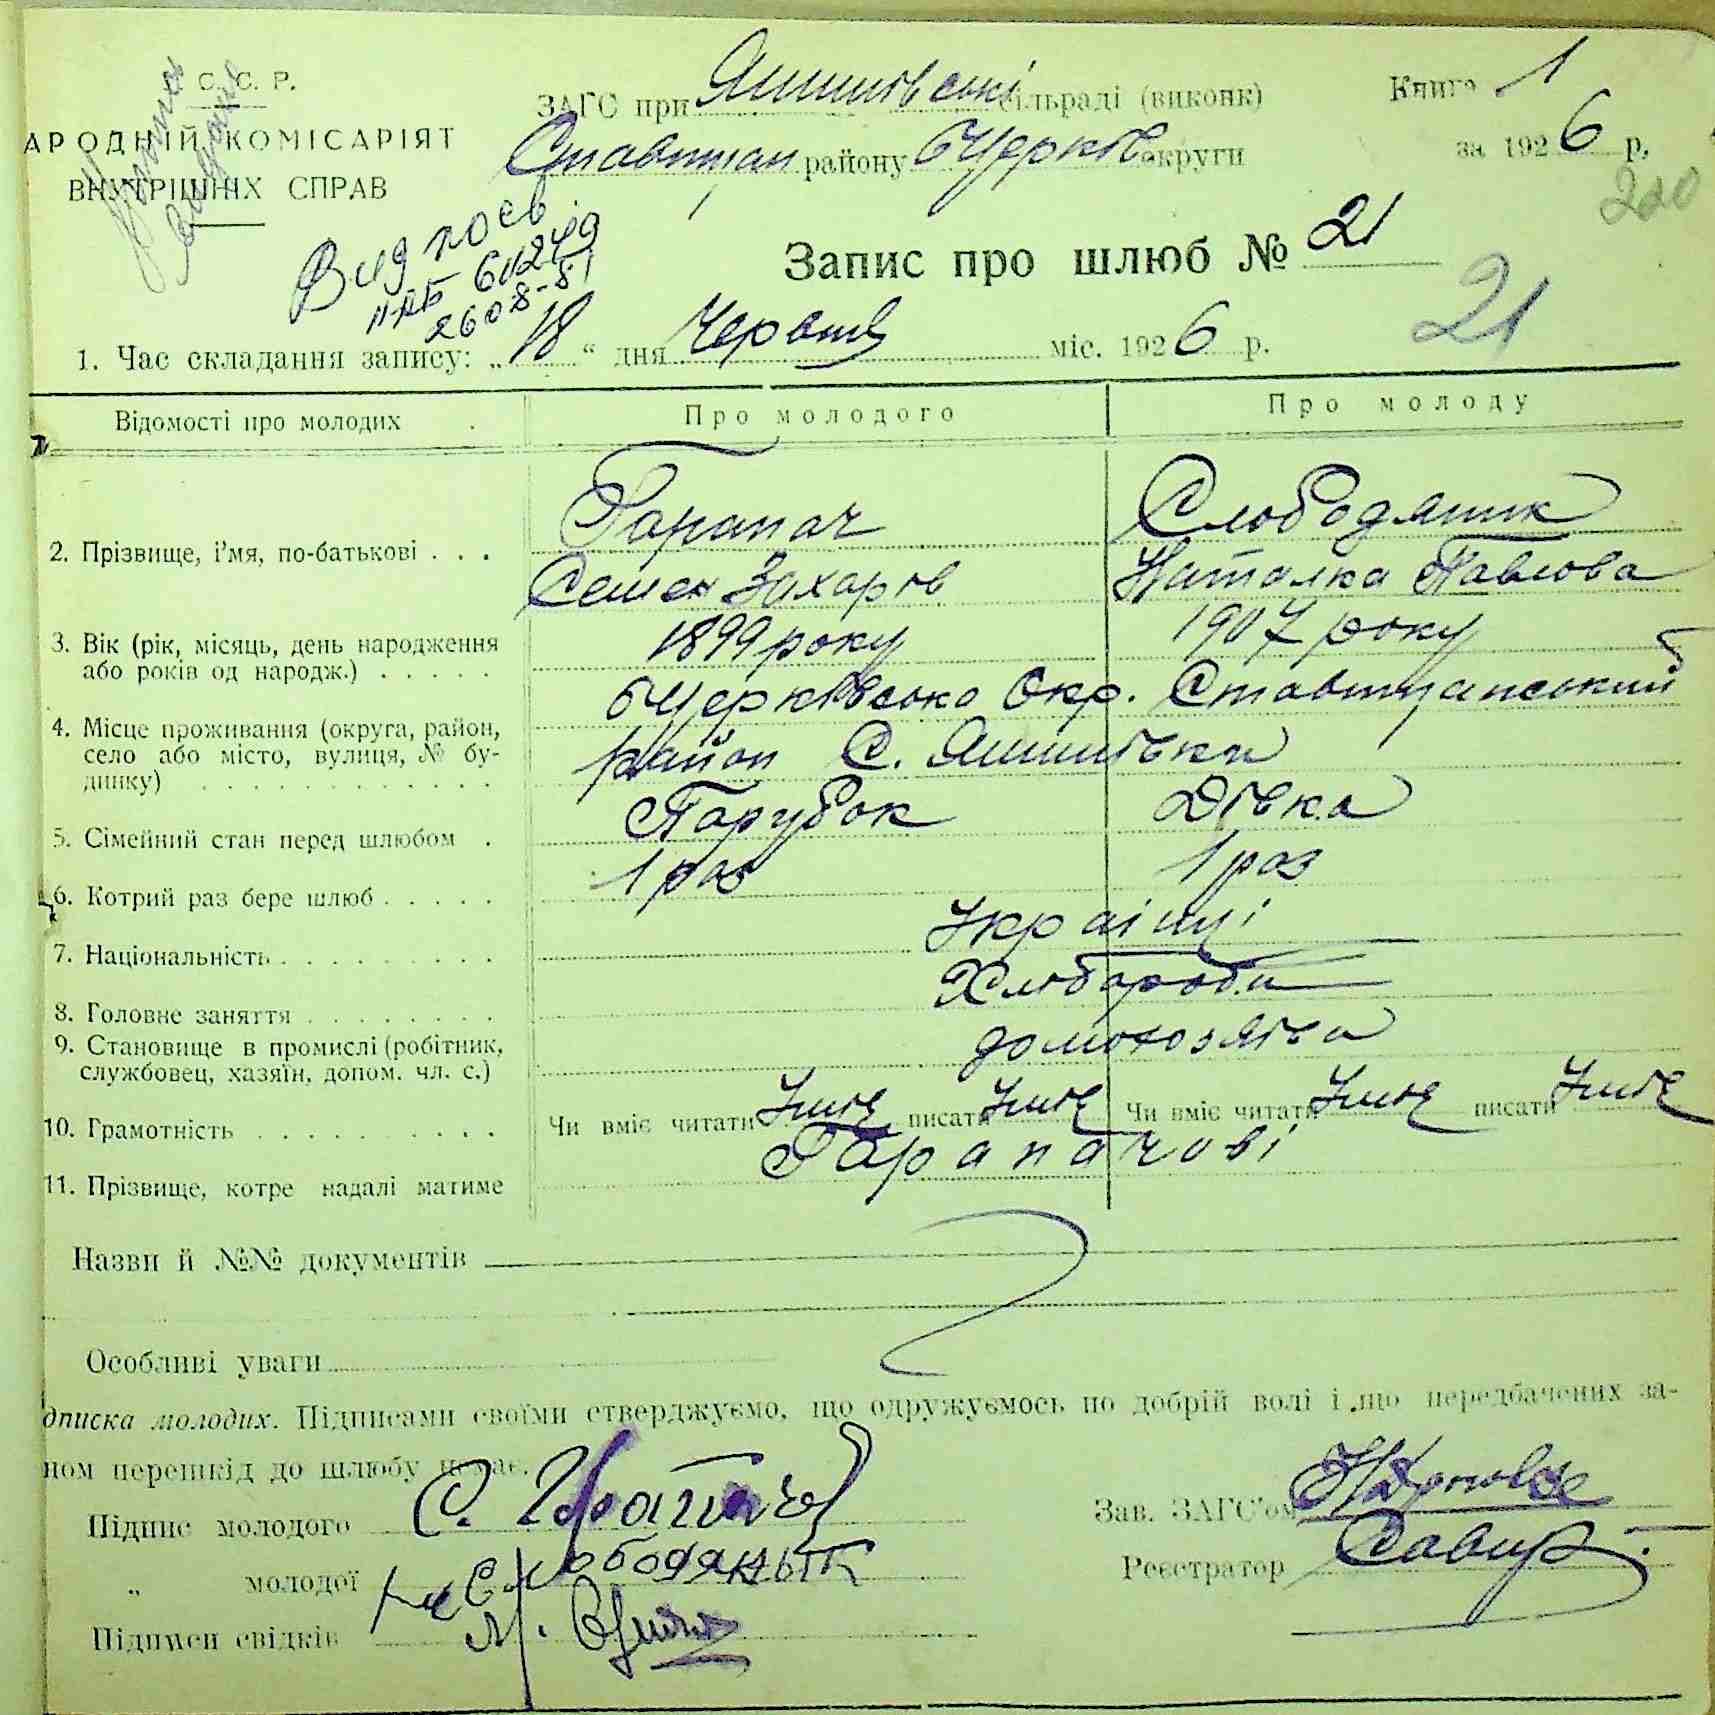 С. С. Р.
АРОДНІЙ КОМІСАРІЯТ
ВНУТРІШНІХ СПРАВ
ЗАГС при Яшшівські сільраді (виконк)
Ставищан району БЦерків округи
Книга 1
за 1926 р.
220
Запис про шлюб № 21
21
Вид пос.
260 8-51
1. Час складання запису: „18“ дня Червня міс. 1926 р.
Відомості про молодих Про молодого Про молоду
2. Прізвище, і'мя, по-батькові . . . Гарапач Слободяник
Семен Захарів Наталка Павлова
3. Вік (рік, місяць, день народження
або років од народж.) . . . . . 1899 року 1907 року
4. Місце проживання (округа, район,
село або місто, вулиця, № бу-
динку) . . . . . . . . . . . .
бЦерківсько Окр. Ставищанський
район С. Яшшівка
5. Сімейний стан перед шлюбом . Парубок Дівка
6. Котрий раз бере шлюб . . . . . 1 раз 1 раз
7. Національність . . . . . . . . . Україиці
8. Головне заняття . . . . . . . . Хлібороби
9. Становище в промислі (робітник,
службовец, хазяїн, допом. чл. с.) домохозяїва
10. Грамотність . . . . . . . . . . Чи вміє читати Уміє писати Уміє Чи вміє читати Уміє писати Уміє
11. Прізвище, котре надалі матиме Гарапачові
Назви й №№ документів
Особливі уваги
дписка молодих. Підписами своїми стверджуємо, що одружуємось по добрій волі і що передбачених за-
ном перешкід до шлюбу немає.
Підпис молодого С. Гарапач
Зав. ЗАГС'ом
„ молодої Слободяньік
Реєстратор
Підписи свідків